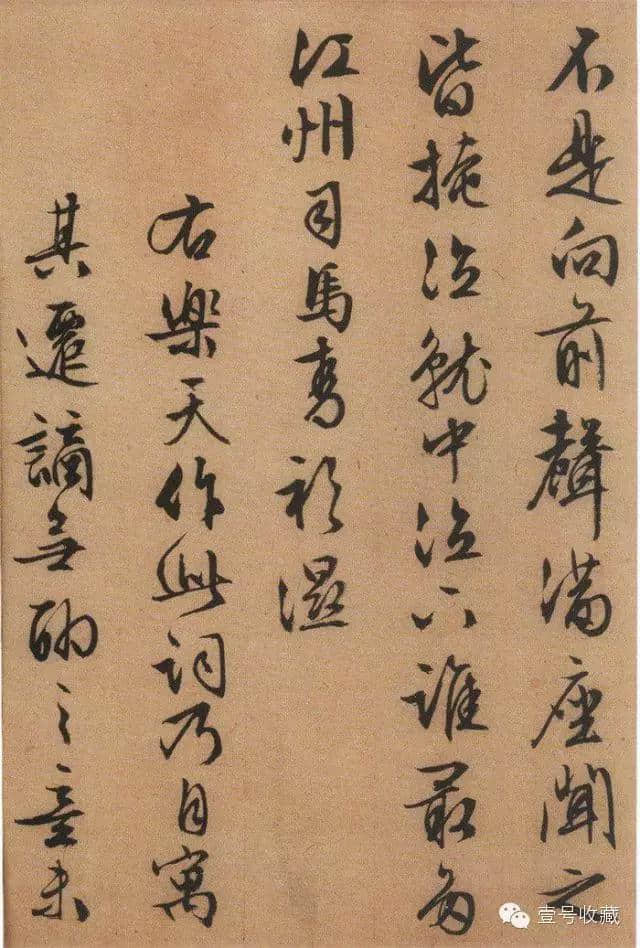 不是向前聲滿座聞之
皆掩泣就中泣下誰最多
江州司馬青衫濕
右樂天作此詞乃自寓
其遷謫無聊之意未
壹号收藏